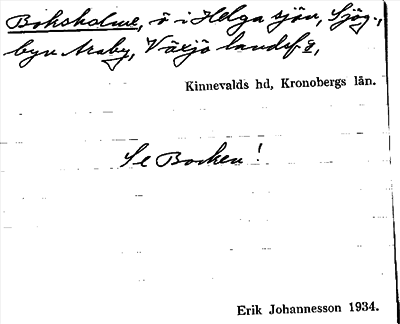 Boksholme, ö i Helgasjön, Sjög.,
byn Araby, Växjö landsf:g,
Kinnevalds hd, Kronobergs län.
Se Bocken!
Erik Johannesson 1934.